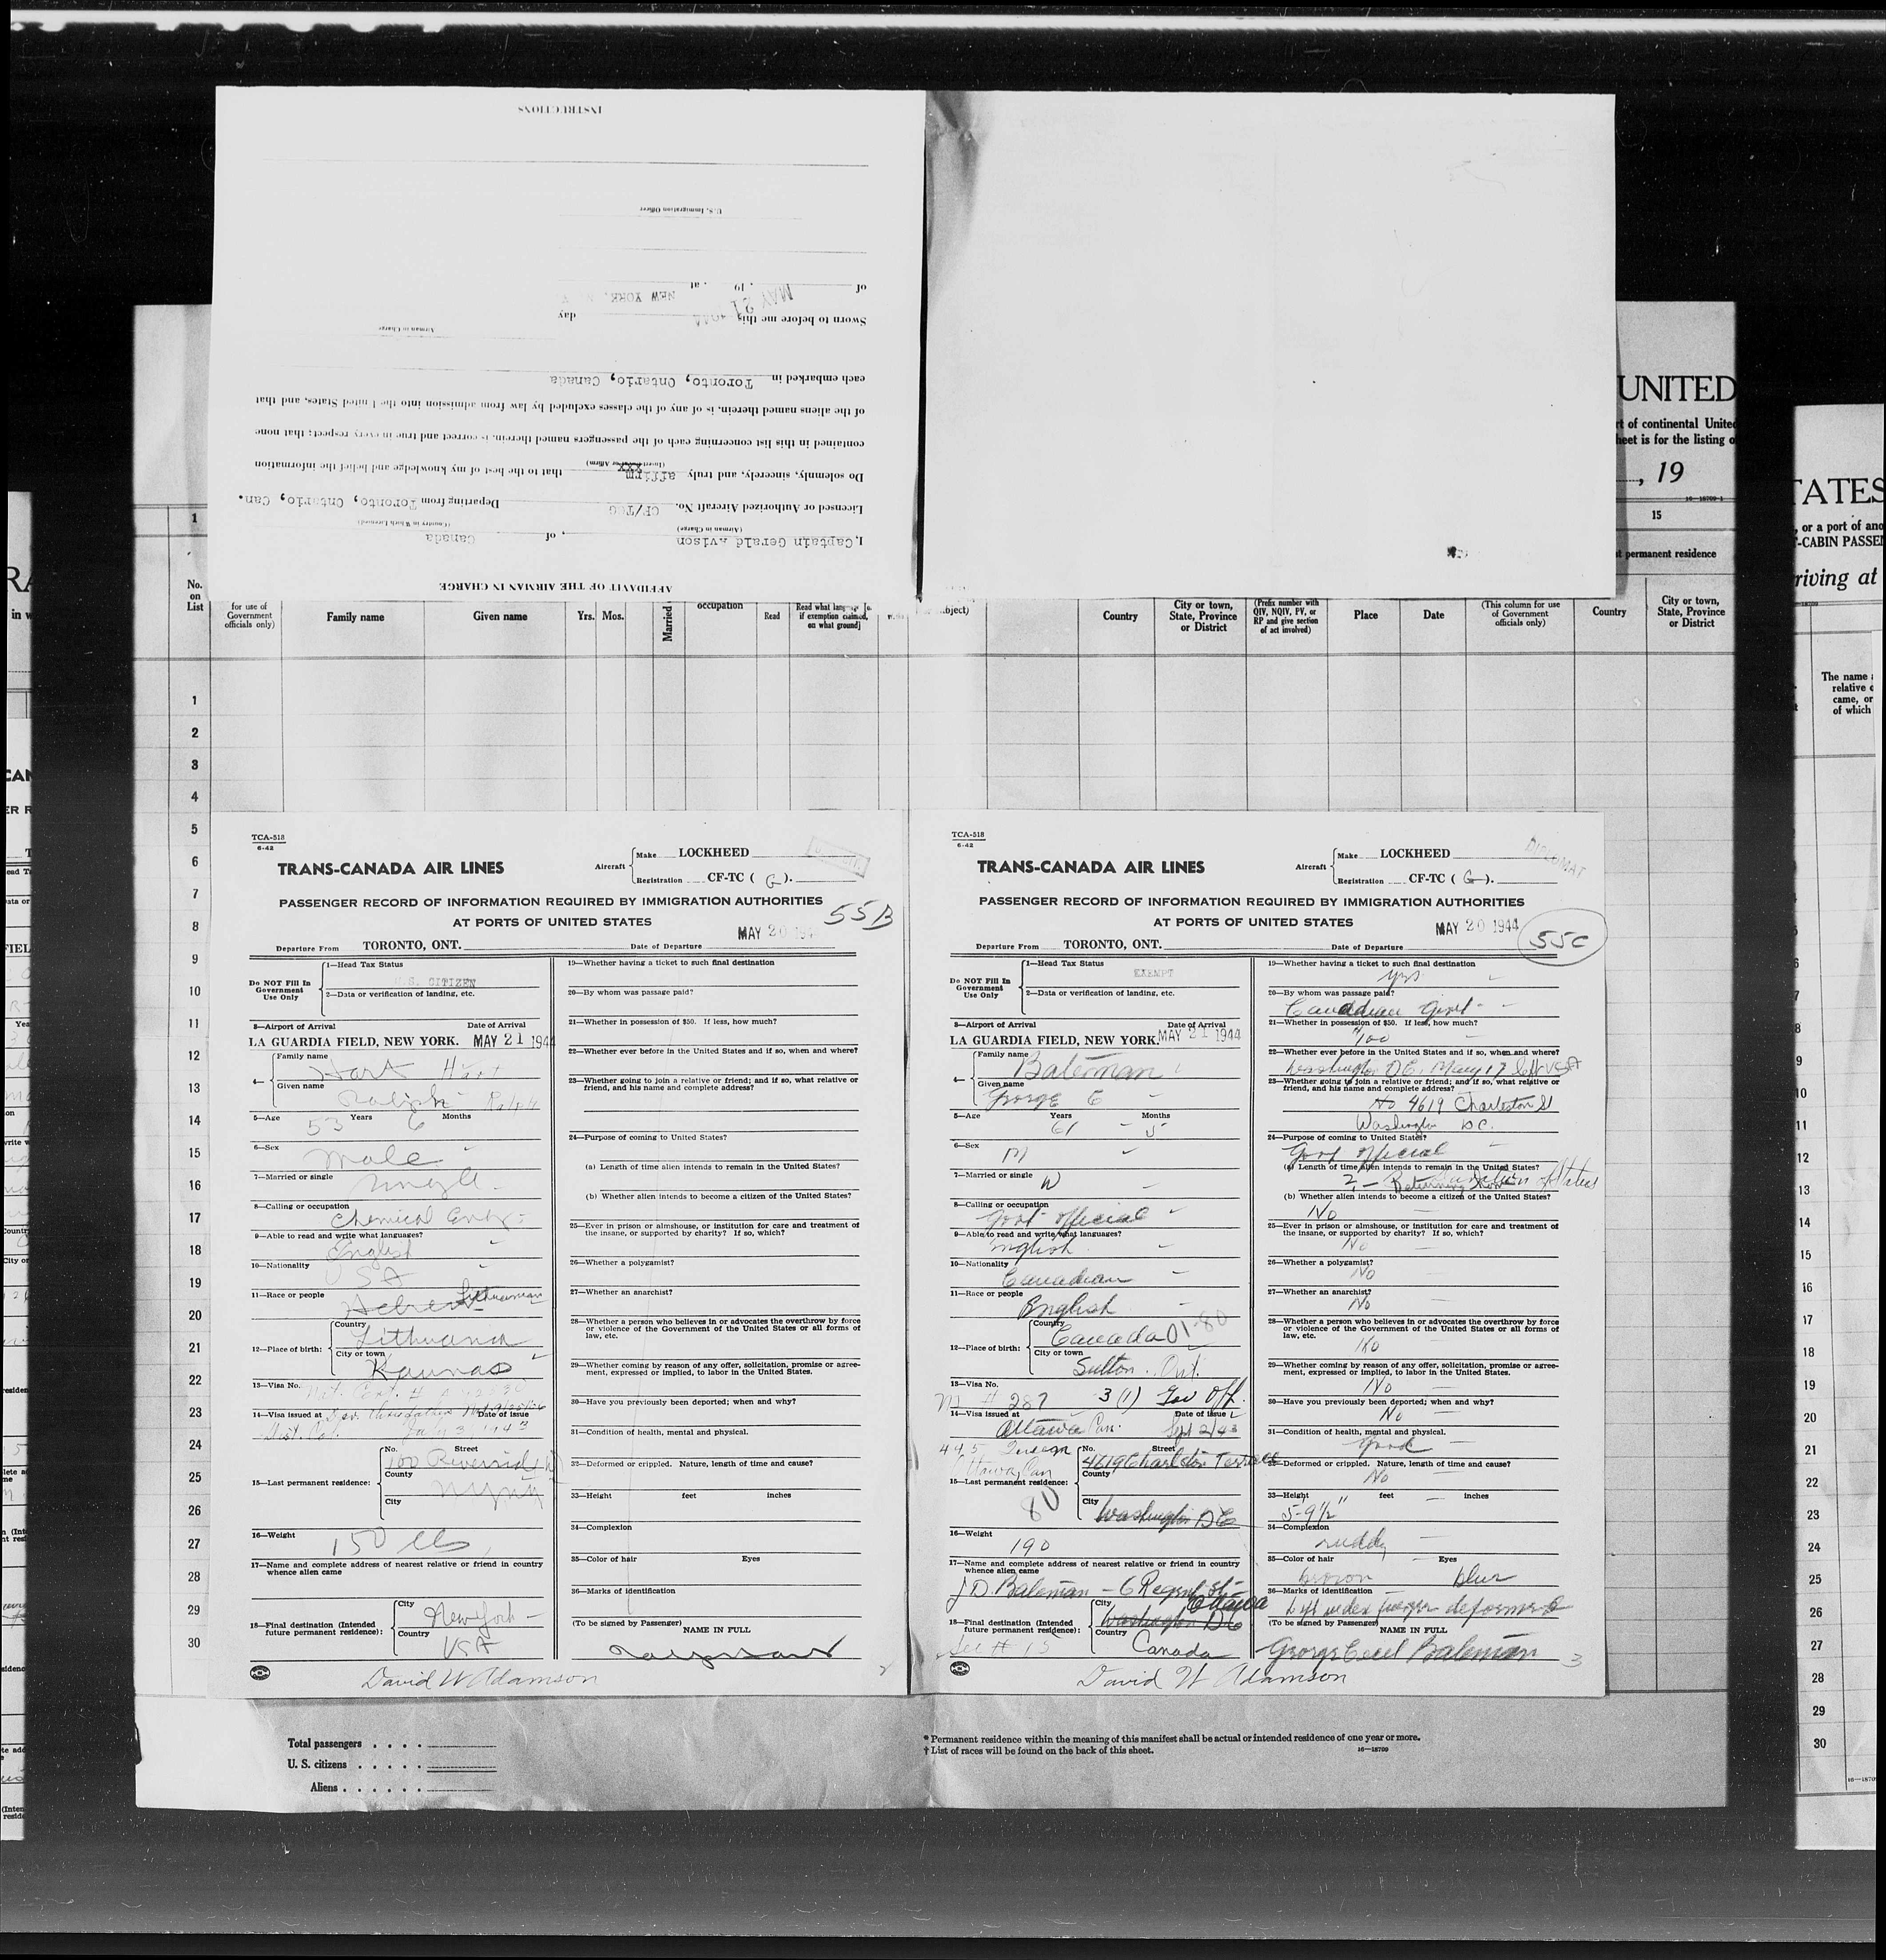 INSTRUCTIONS
U. S. Immigration Officer
of , 19 , at NEW YORK, N. Y.
MAY 21 1944
Sworn to before me this day
Airman in Charge
each embarked in Toronto, Ontario, Canada
of the aliens named therein, is of any of the classes excluded by law from admission into the United States, and that
contained in this list concerning each of the passengers named therein, is correct and true in every respect; that none
Do solemnly, sincerely, and truly affirm xxx that to the best of my knowledge and belief the information
Licensed or Authorized Aircraft No. CF/TCG Departing from Toronto, Ontario, Can.
(Airman in Charge) (Country in Which Licensed)
I, Captain Gerald Avison, of Canada
AFFIDAVIT OF THE AIRMAN IN CHARGE
UNITED
rt of continental United
heet is for the listing o
, 19
16—18709-1
1
15
t permanent residence
No.
on
List
for use of
Government
officials only)
Family name
Given name
Yrs. Mos.
Married
occupation
Read
Read what
if exemption claimed,
on what ground]
bject)
Country
City or town,
State, Province
or District
(Prefix number with
QIV, NQIV, PV, or
RP and give section
of act involved)
Place
Date
(This column for use
of Government
officials only)
Country
City or town,
State, Province
or District
TATES
, or a port of ano
T-CABIN PASSEN
riving at
The name
relative
came, or
of which
1
2
3
4
5
6
7
8
9
10
11
12
13
14
15
16
17
18
19
20
21
22
23
24
25
26
27
28
29
30
TCA-518
6-42
TRANS-CANADA AIR LINES
Aircraft
Make LOCKHEED
Registration CF-TC ( G ).
PASSENGER RECORD OF INFORMATION REQUIRED BY IMMIGRATION AUTHORITIES
AT PORTS OF UNITED STATES
55B
MAY 20 194
Departure From TORONTO, ONT. Date of Departure
Do NOT Fill In
Government
Use Only
1—Head Tax Status
U.S. CITIZEN
2—Data or verification of landing, etc.
3—Airport of Arrival Date of Arrival
LA GUARDIA FIELD, NEW YORK. MAY 21 1944
4— Family name
Hart Hart
Given name
Ralph Ralph
5—Age Years Months
53 6
6—Sex
Male
7—Married or single
Single
8—Calling or occupation
Chemical Engr.
9—Able to read and write what languages?
English
10—Nationality
11—Race or people
Hebrew Lithuanian
12—Place of birth: Country
Lithuania
City or town
Kaunas
13—Visa No.
14—Visa issued at Date of issue
July 3 1943
15—Last permanent residence: No. Street
100 Riverside
County
City
16—Weight
150 lbs
17—Name and complete address of nearest relative or friend in country
whence alien came
18—Final destination (Intended
future permanent residence):
City
New York
Country
USA
David W Adamson
19—Whether having a ticket to such final destination
20—By whom was passage paid?
21—Whether in possession of $50. If less, how much?
22—Whether ever before in the United States and if so, when and where?
23—Whether going to join a relative or friend; and if so, what relative or
friend, and his name and complete address?
24—Purpose of coming to United States?
(a) Length of time alien intends to remain in the United States?
(b) Whether alien intends to become a citizen of the United States?
25—Ever in prison or almshouse, or institution for care and treatment of
the insane, or supported by charity? If so, which?
26—Whether a polygamist?
27—Whether an anarchist?
28—Whether a person who believes in or advocates the overthrow by force
or violence of the Government of the United States or all forms of
law, etc.
29—Whether coming by reason of any offer, solicitation, promise or agree-
ment, expressed or implied, to labor in the United States.
30—Have you previously been deported; when and why?
31—Condition of health, mental and physical.
32—Deformed or crippled. Nature, length of time and cause?
33—Height feet inches
34—Complexion
35—Color of hair Eyes
36—Marks of identification
(To be signed by Passenger)
NAME IN FULL
TCA-518
6-42
TRANS-CANADA AIR LINES
Aircraft
Make LOCKHEED
Registration CF-TC ( G ).
DIPLOMAT
PASSENGER RECORD OF INFORMATION REQUIRED BY IMMIGRATION AUTHORITIES
AT PORTS OF UNITED STATES
MAY 20 1944
55C
Departure From TORONTO, ONT. Date of Departure
Do NOT Fill In
Government
Use Only
1—Head Tax Status
EXEMPT
2—Data or verification of landing, etc.
3—Airport of Arrival Date of Arrival
LA GUARDIA FIELD, NEW YORK. MAY 21 1944
4— Family name
Bateman
Given name
George C
5—Age Years Months
61 5
6—Sex
M
7—Married or single
W
8—Calling or occupation
Govt official
9—Able to read and write what languages?
English
10—Nationality
Canadian
11—Race or people
English
12—Place of birth: Country
Canada 01-80
City or town
Sutton. Ont.
13—Visa No.
# 287 3 (1) Gov Off.
14—Visa issued at Date of issue
Ottawa Can. Sept 2/43
15—Last permanent residence: No. Street
4619 Charleston Terrace
County
80
City
Washington DC
16—Weight
190
17—Name and complete address of nearest relative or friend in country
whence alien came
J D. Bateman - 6 Regent St-
Ottawa
18—Final destination (Intended
future permanent residence):
City
Washington DC
Country
Canada
See # 15
David W Adamson
19—Whether having a ticket to such final destination
yes
20—By whom was passage paid?
Canadian Govt
21—Whether in possession of $50. If less, how much?
100
22—Whether ever before in the United States and if so, when and where?
Washington DC. May 17
23—Whether going to join a relative or friend; and if so, what relative or
friend, and his name and complete address?
No 4619 Charleston St
Washington DC.
24—Purpose of coming to United States?
Govt official
(a) Length of time alien intends to remain in the United States?
(b) Whether alien intends to become a citizen of the United States?
No
25—Ever in prison or almshouse, or institution for care and treatment of
the insane, or supported by charity? If so, which?
No
26—Whether a polygamist?
No
27—Whether an anarchist?
No
28—Whether a person who believes in or advocates the overthrow by force
or violence of the Government of the United States or all forms of
law, etc.
No
29—Whether coming by reason of any offer, solicitation, promise or agree-
ment, expressed or implied, to labor in the United States.
No
30—Have you previously been deported; when and why?
No
31—Condition of health, mental and physical.
good
32—Deformed or crippled. Nature, length of time and cause?
No
33—Height feet inches
5-9½"
34—Complexion
ruddy
35—Color of hair Eyes
brown blue
36—Marks of identification
Left index finger deformed
(To be signed by Passenger)
NAME IN FULL
George Cecil Bateman
3
Total passengers . . . .
U. S. citizens . . . . .
Aliens . . . . . .
* Permanent residence within the meaning of this manifest shall be actual or intended residence of one year or more.
† List of races will be found on the back of this sheet. 16—18709